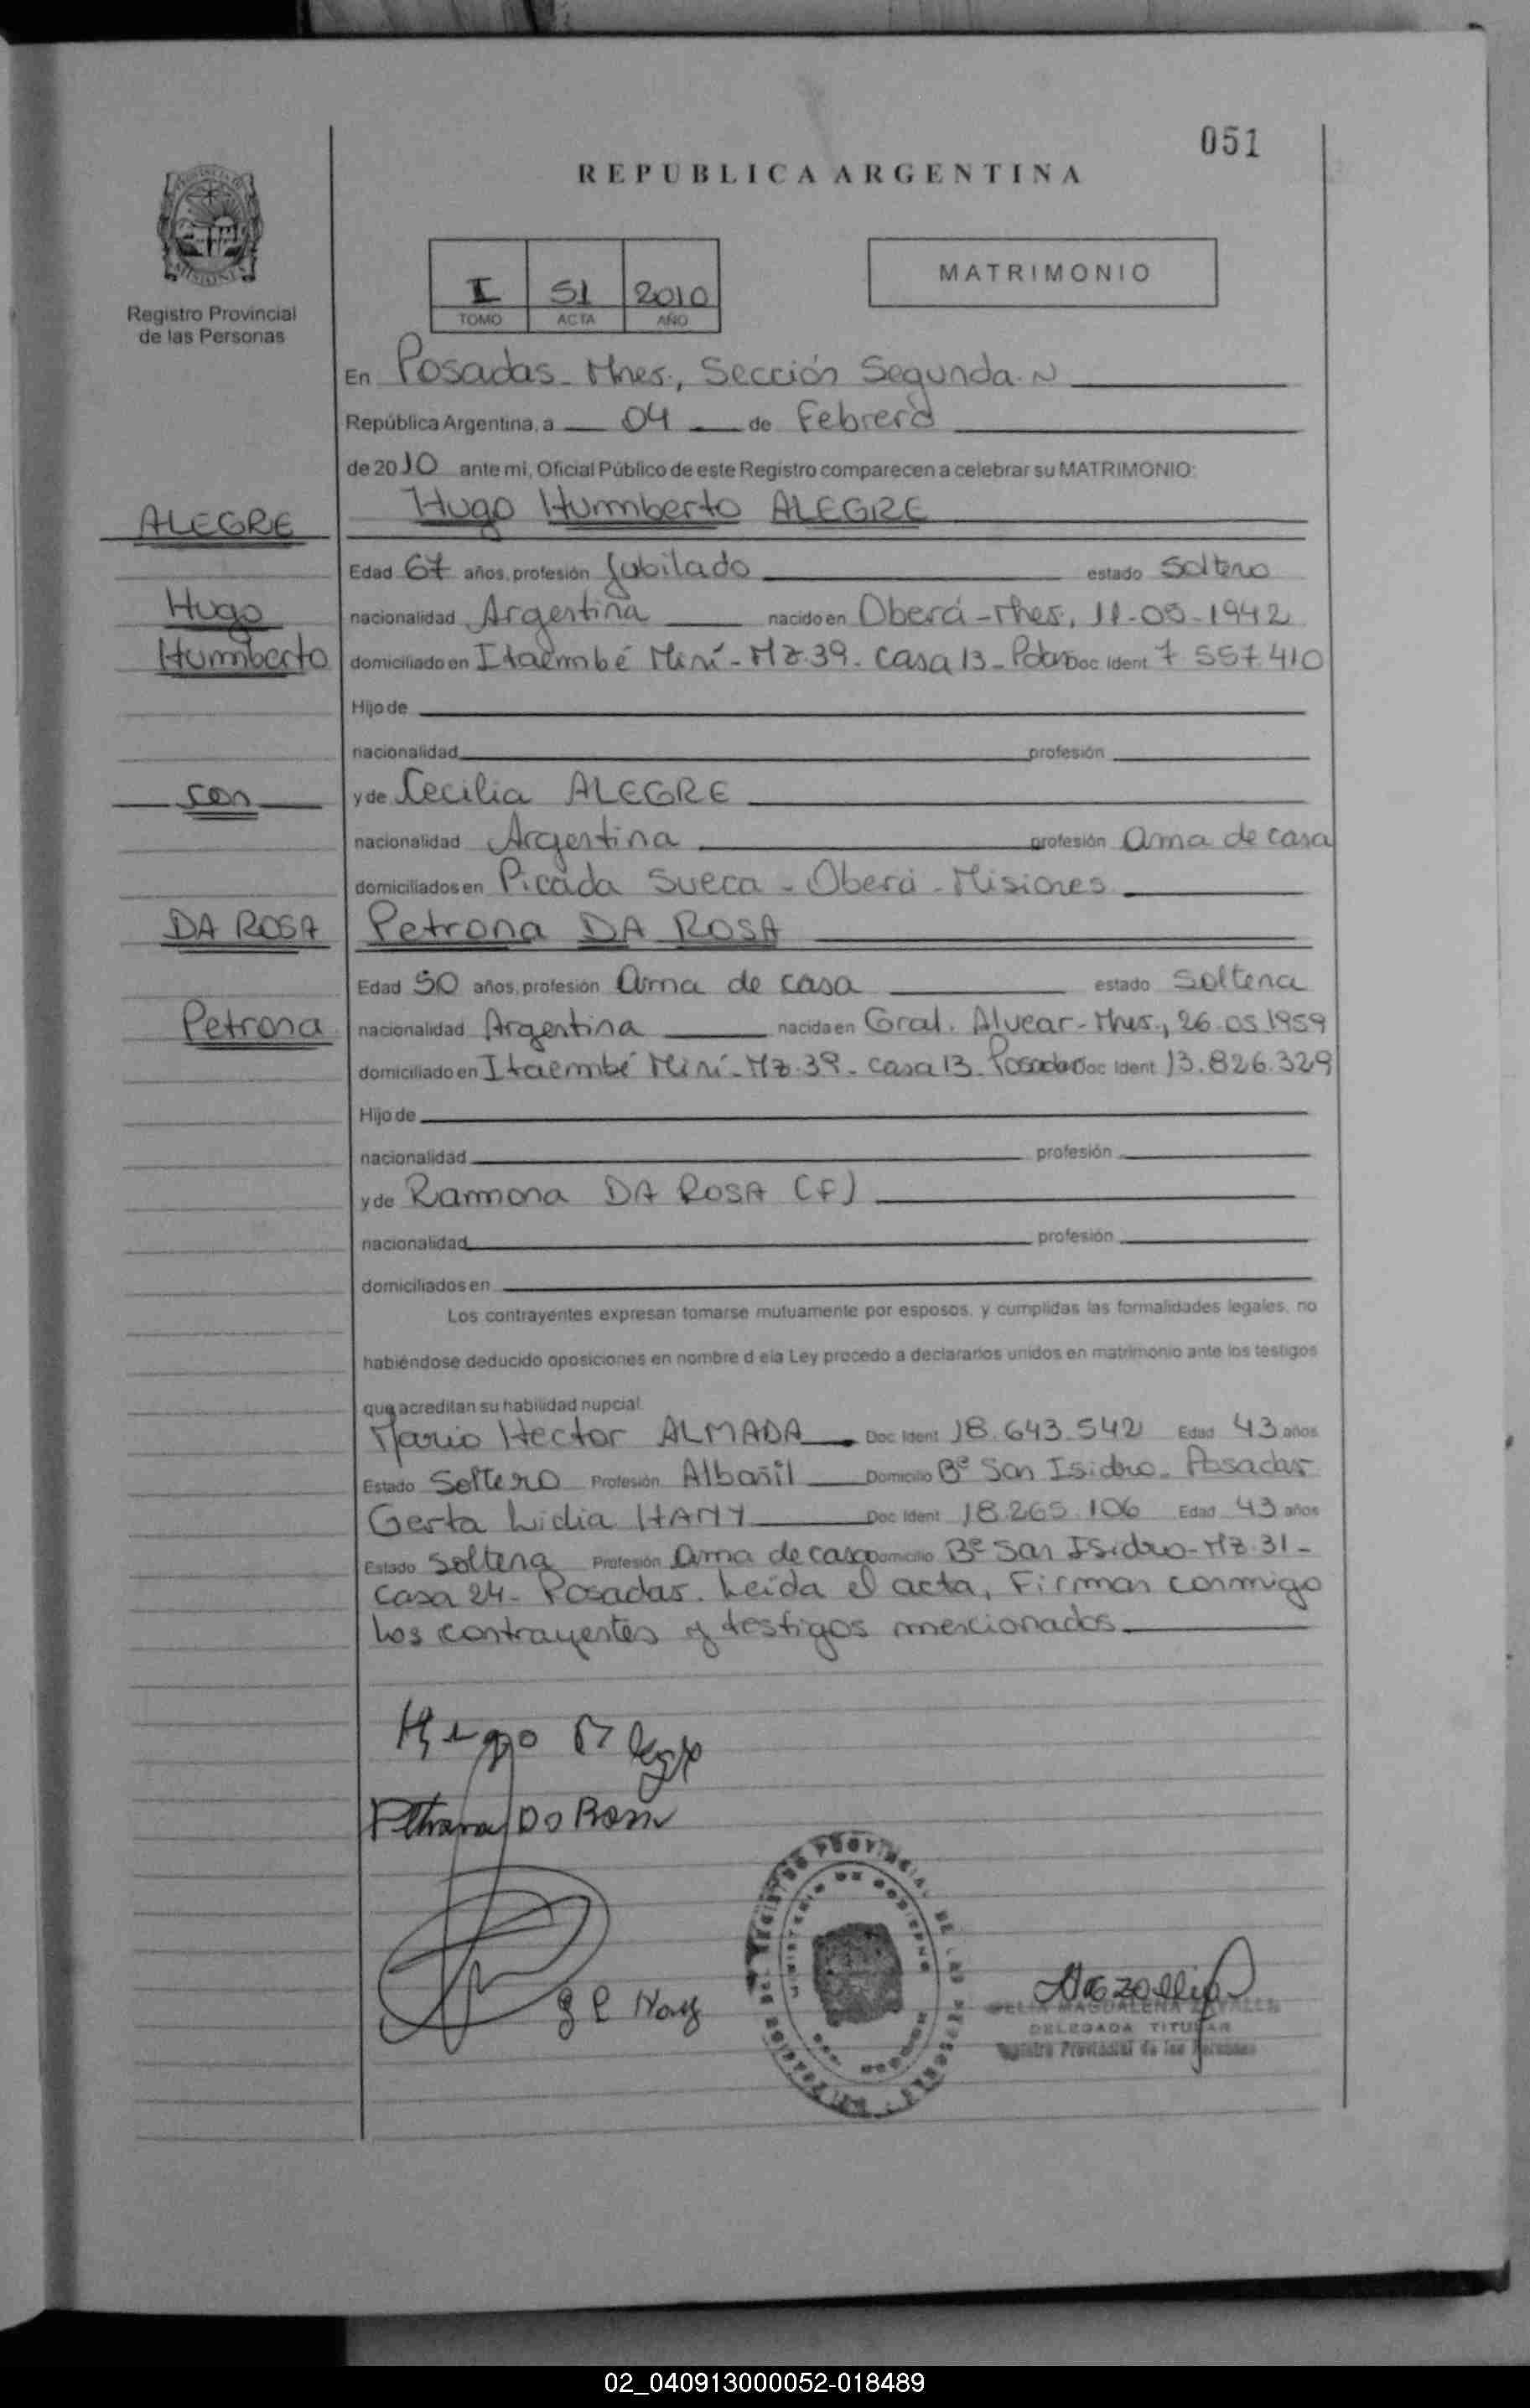 051
REPUBLICA ARGENTINA
I 51 2010
TOMO ACTA AÑO
MATRIMONIO
Registro Provincial
de las Personas
En Posadas - Mnes., Sección Segunda. N
República Argentina, a 04 de Febrero
de 2010 ante mi, Oficial Público de este Registro comparecen a celebrar su MATRIMONIO:
ALEGRE Hugo Humberto ALEGRE
Edad 67 años, profesión Jubilado estado Soltero
Hugo nacionalidad Argentina nacido en Oberá - Mnes, 11-05-1942
Humberto domiciliado en Itaembé Miní - Mz. 39 - casa 13 - Pdas Doc Ident 7 557.410
Hijo de
nacionalidad profesión
con y de Cecilia ALEGRE
nacionalidad Argentina profesión ama de casa
domiciliados en Picada Sueca - Oberá - Misiones
DA ROSA Petrona DA ROSA
Edad 50 años, profesión ama de casa estado Soltera
Petrona nacionalidad Argentina nacida en Gral. Alvear - Mnes., 26.05.1959
domiciliado en Itaembé Miní - Mz. 39 - casa 13 - Posadas Doc Ident 13.826.329
Hijo de
nacionalidad profesión
y de Ramona DA ROSA (f)
nacionalidad profesión
domiciliados en
Los contrayentes expresan tomarse mutuamente por esposos, y cumplidas las formalidades legales, no
habiéndose deducido oposiciones en nombre d ela Ley procedo a declararlos unidos en matrimonio ante los testigos
que acreditan su habilidad nupcial.
Mario Hector ALMADA Doc Ident 18.643.542 Edad 43 años
Estado Soltero Profesión Albañil Domicilio Bº San Isidro - Posadas
Gerta Lidia HANY Doc Ident 18.265.106 Edad 43 años
Estado Soltera Profesión ama de casa Domicilio Bº San Isidro - Mz. 31 -
casa 24 - Posadas. Leída el acta, Firman conmigo
los contrayentes y testigos mencionados.
Hugo Alegre
Petrona DA Rosa
G L Hany
REGISTRO PROVINCIAL DE LAS PERSONAS
MINISTERIO DE GOBIERNO
MAGDALENA
DELEGADA TITULAR
Registro Provincial de las Personas
02_040913000052-018489